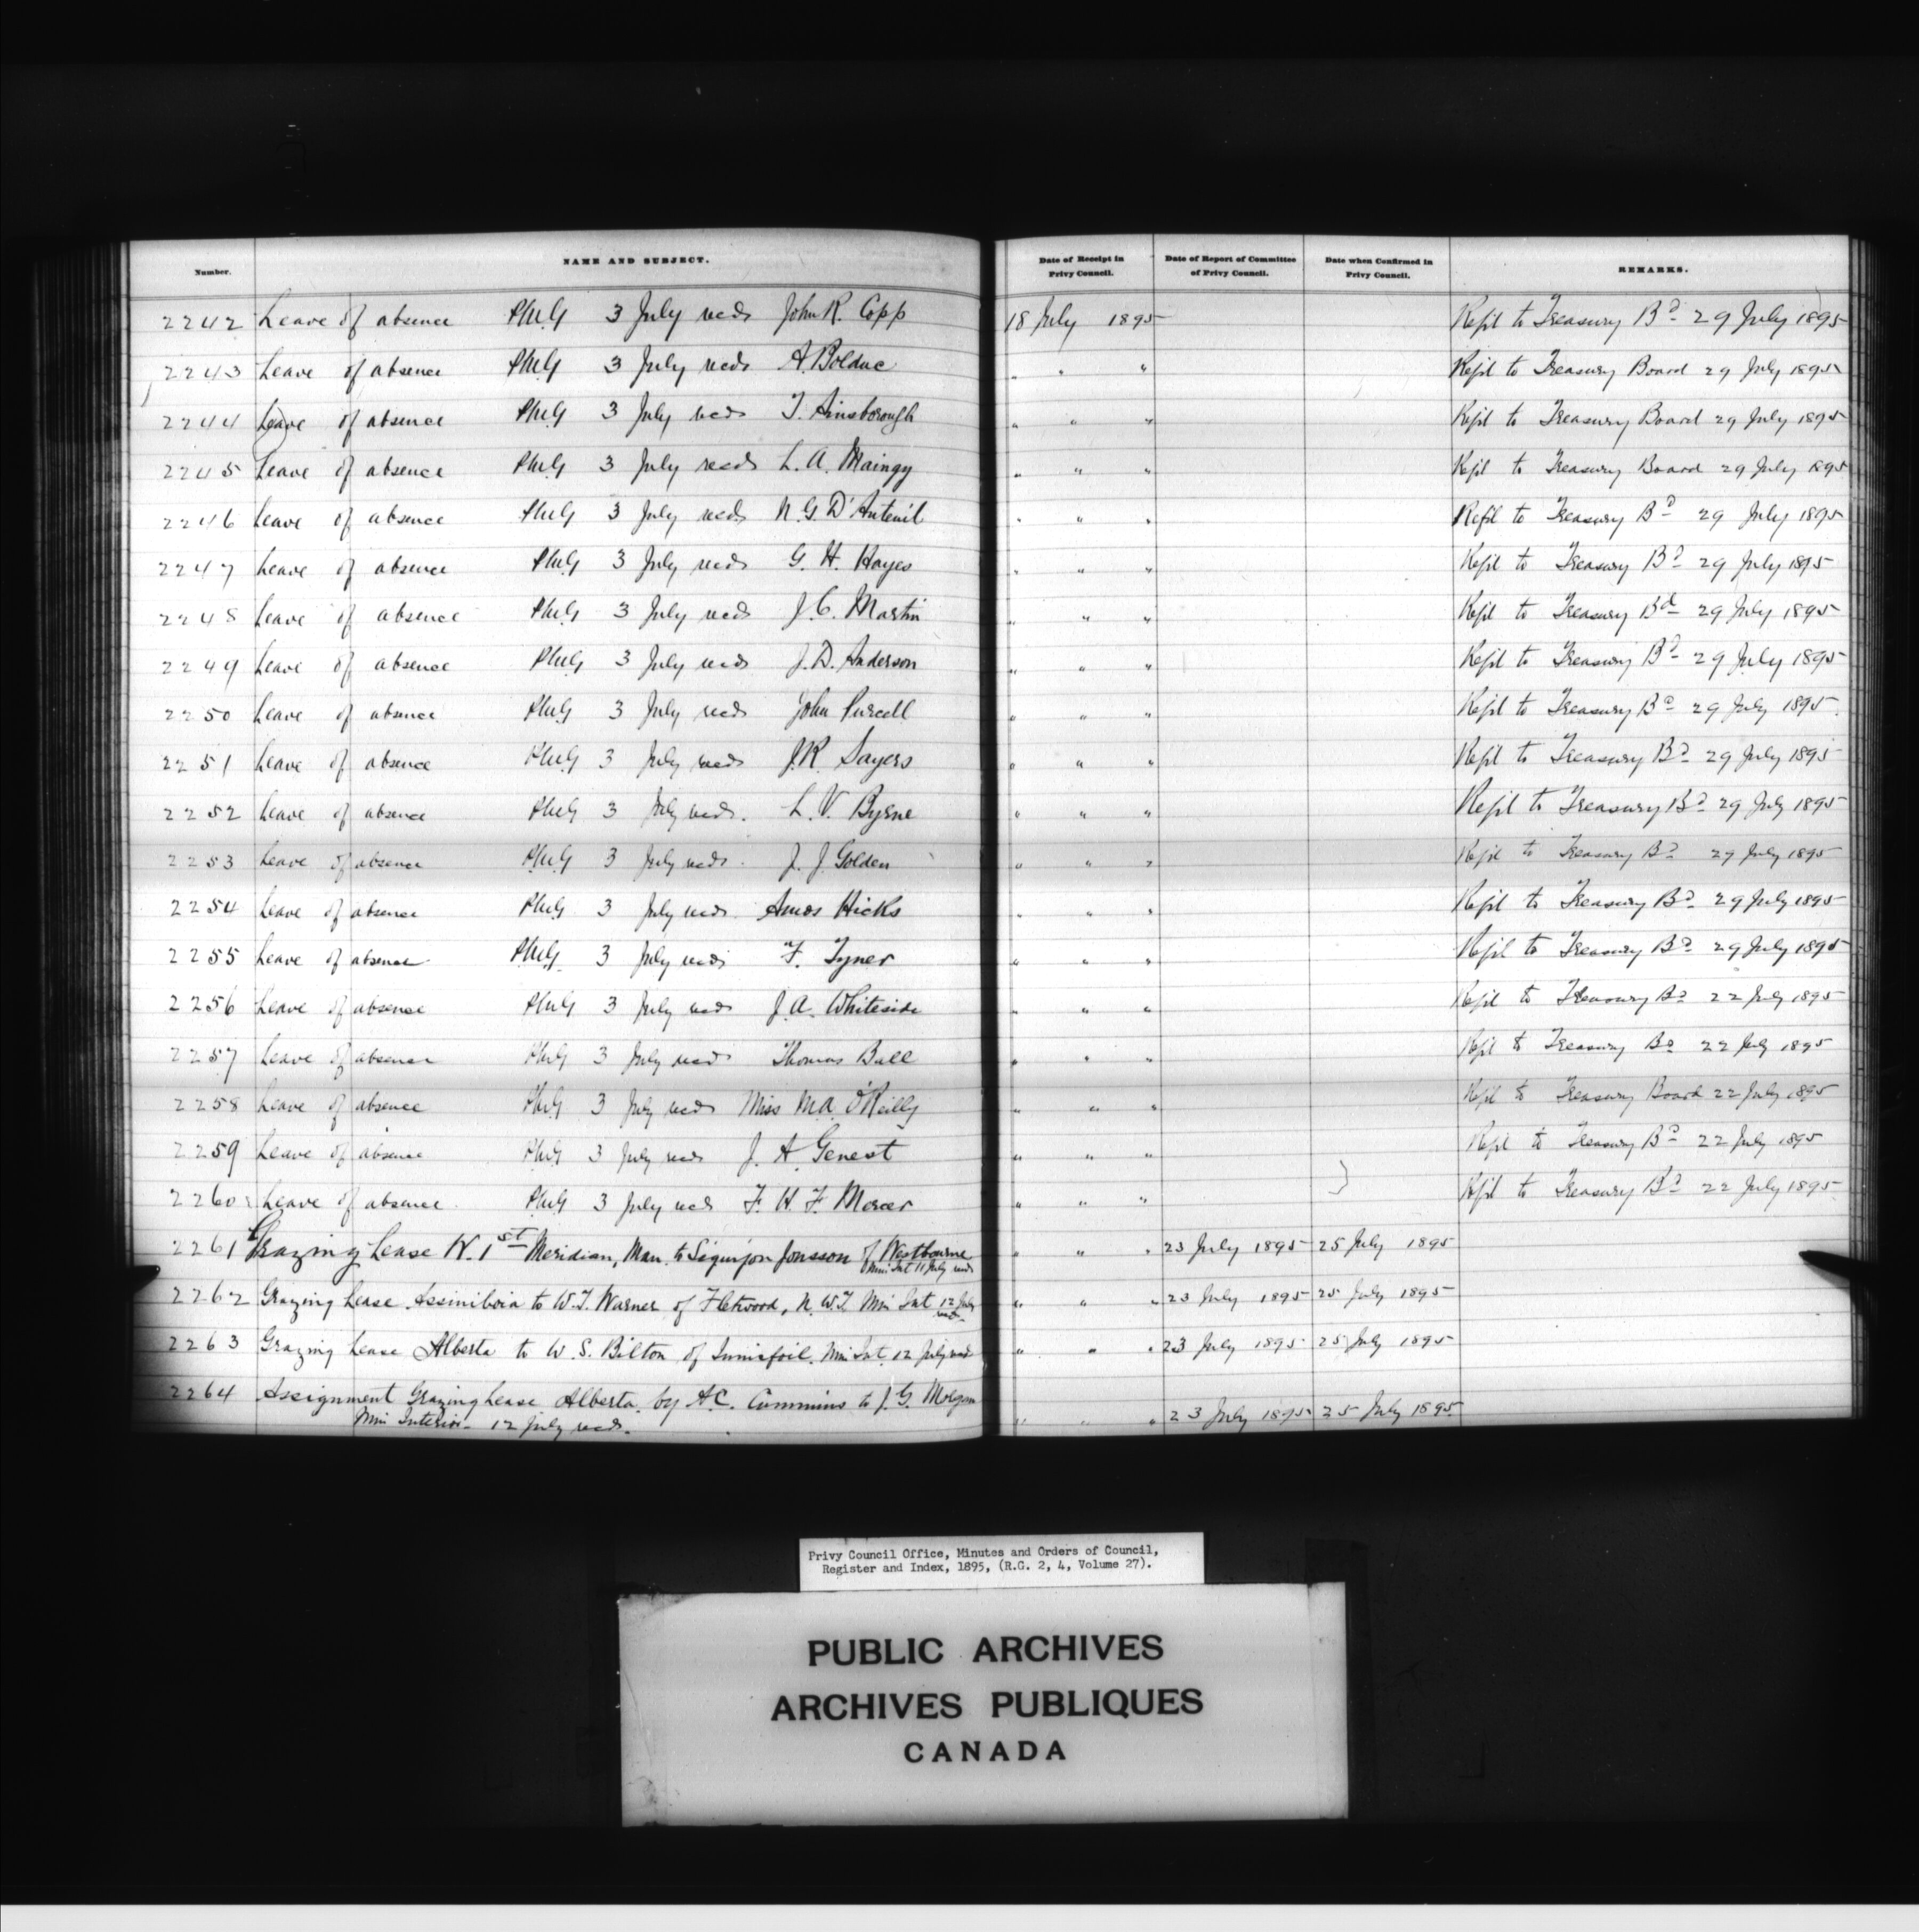 Number. NAME AND SUBJECT. Date of Receipt in Privy Council. Date of Report of Committee of Privy Council. Date when Confirmed in Privy Council. REMARKS.
2242 Leave of absence PMG 3 July recds John R. Copp 18 July 1895 Refd to Treasury Bd 29 July 1895
2243 Leave of absence PMG 3 July recds A. Bolduc " " " Refd to Treasury Board 29 July 1895
2244 Leave of absence PMG 3 July recds T. Ainsborough " " " Refd to Treasury Board 29 July 1895
2245 Leave of absence PMG 3 July recds L. A. Maingy " " " Refd to Treasury Board 29 July 1895
2246 Leave of absence PMG 3 July recds N. G. D'Auteuil " " " Refd to Treasury Bd 29 July 1895
2247 Leave of absence PMG 3 July recds G. H. Hayes " " " Refd to Treasury Bd 29 July 1895
2248 Leave of absence PMG 3 July recds J. C. Martin " " " Refd to Treasury Bd 29 July 1895
2249 Leave of absence PMG 3 July recds J. D. Anderson " " " Refd to Treasury Bd 29 July 1895
2250 Leave of absence PMG 3 July recds John Purcell " " " Refd to Treasury Bd 29 July 1895
2251 Leave of absence PMG 3 July recds J. R. Sayers " " " Refd to Treasury Bd 29 July 1895
2252 Leave of absence PMG 3 July recds. L. V. Byrne " " " Refd to Treasury Bd 29 July 1895
2253 Leave of absence PMG 3 July recds. J. J. Golden " " " Refd to Treasury Bd 29 July 1895
2254 Leave of absence PMG 3 July recds. Amos Hicks " " " Refd to Treasury Bd 29 July 1895
2255 Leave of absence PMG 3 July recds F. Tyner " " " Refd to Treasury Bd 29 July 1895
2256 Leave of absence PMG 3 July recds J. A. Whiteside " " " Refd to Treasury Bd 22 July 1895
2257 Leave of absence PMG 3 July recds Thomas Bull " " " Refd to Treasury Bd 22 July 1895
2258 Leave of absence PMG 3 July recds Miss M. A. O'Reilly " " " Refd to Treasury Board 22 July 1895
2259 Leave of absence PMG 3 July recds J. A. Genest " " " Refd to Treasury Bd 22 July 1895
2260 Leave of absence PMG 3 July recds F. H. F. Mercer " " " Refd to Treasury Bd 22 July 1895
2261 Grazing Lease W. 1st Meridian, Man. to Sigurjon Jonsson of Westbourne " " " 23 July 1895 25 July 1895
Min Int 11 July recds
2262 Grazing Lease Assiniboia to W. T. Warner of Fletwood, N. W. T. Min Int 12 July recds " " " 23 July 1895 25 July 1895
2263 Grazing Lease Alberta to W. S. Bilton of Innisfail. Min Int. 12 July recds " " " 23 July 1895 25 July 1895
2264 Assignment Grazing Lease Alberta by A. C. Cummins to J. G. Morgan
Min Interior 12 July recds. " " " 23 July 1895 25 July 1895
Privy Council Office, Minutes and Orders of Council,
Register and Index, 1895, (R.G. 2, 4, Volume 27).
PUBLIC ARCHIVES
ARCHIVES PUBLIQUES
CANADA